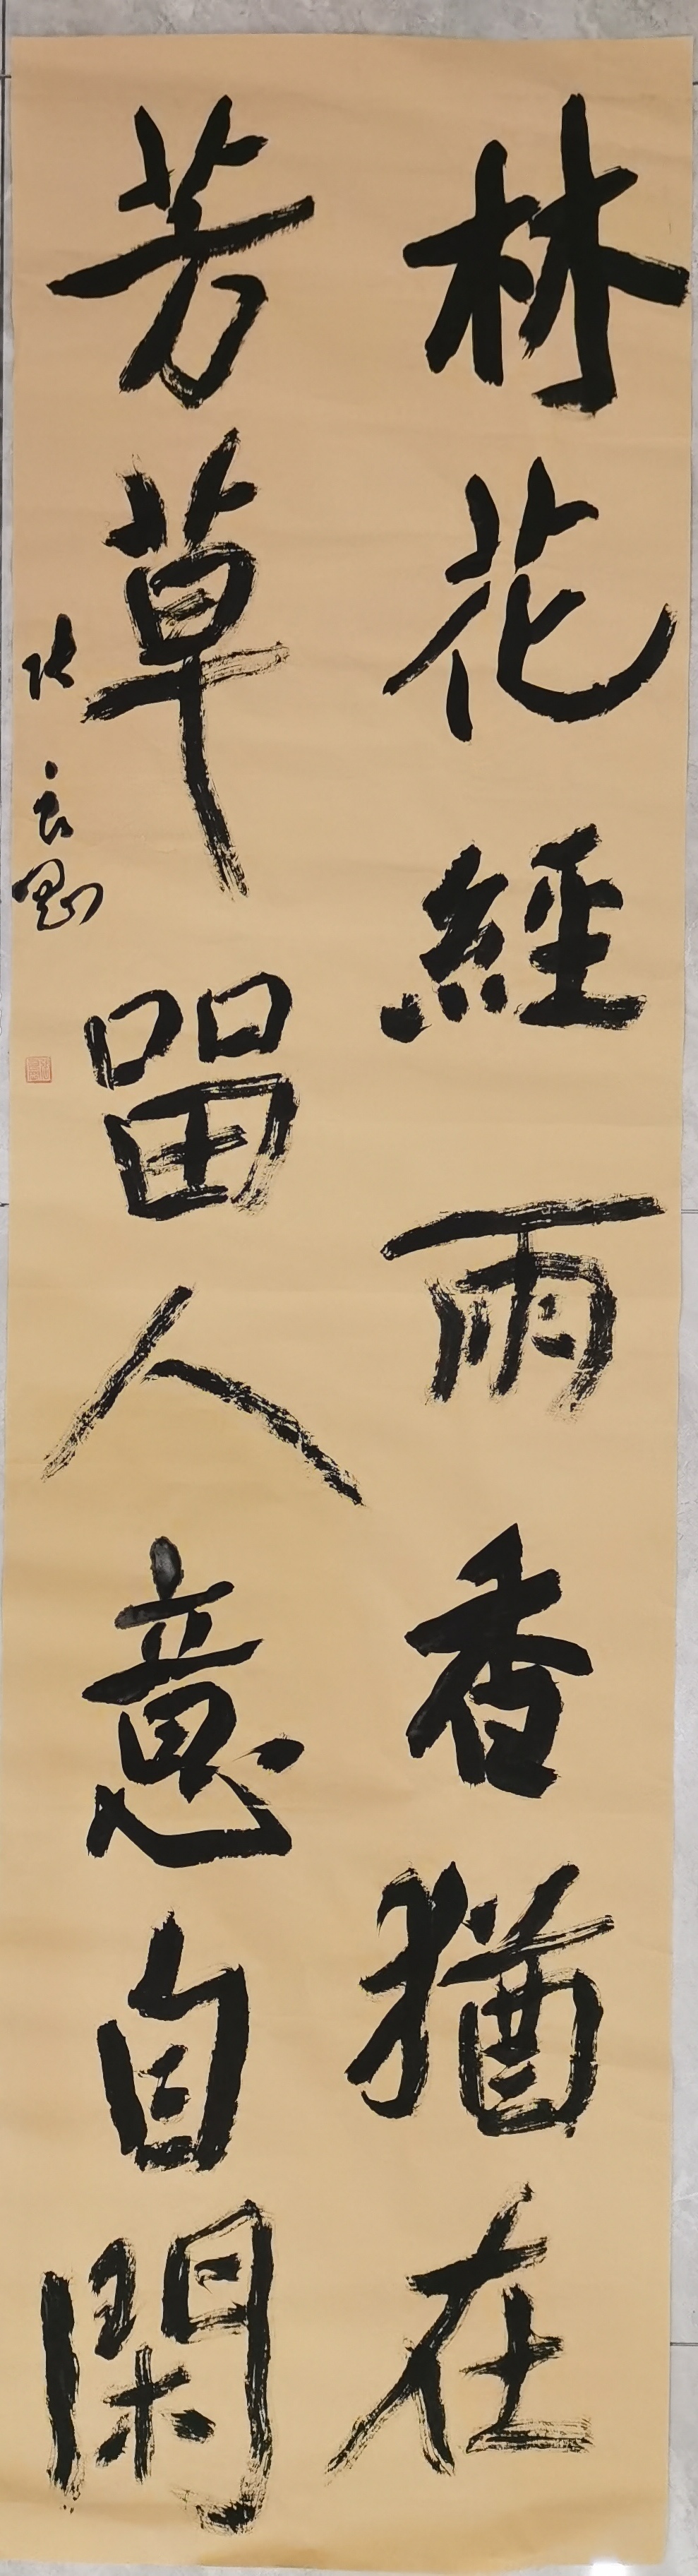 林花經雨香猶在
芳草留人意自閑
張良剛